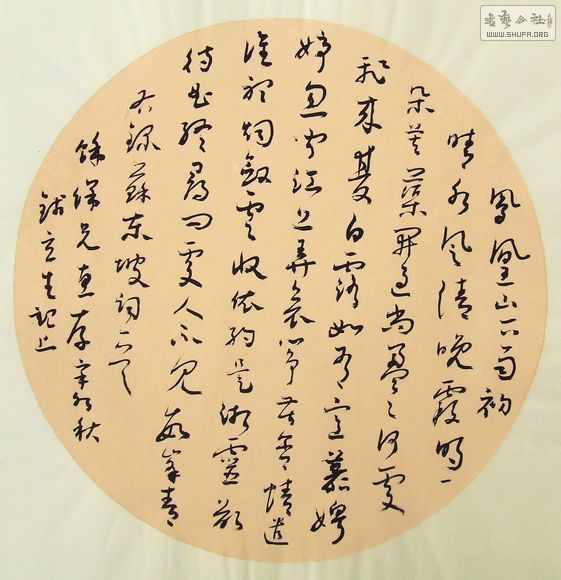 鳳凰山下雨初
晴水風清晚霞明一
朵芙蕖開過尚盈〻何處
飛來雙白鷺如有意慕娉
婷忽聞江上弄哀箏苦含情遣
誰聽烟斂雲收依約是湘靈欲
待曲終尋問處人不見數峯青
右錄蘇東坡詞一
兄惠存辛卯秋
立生記
書藝公社
WWW.SHUFA.ORG